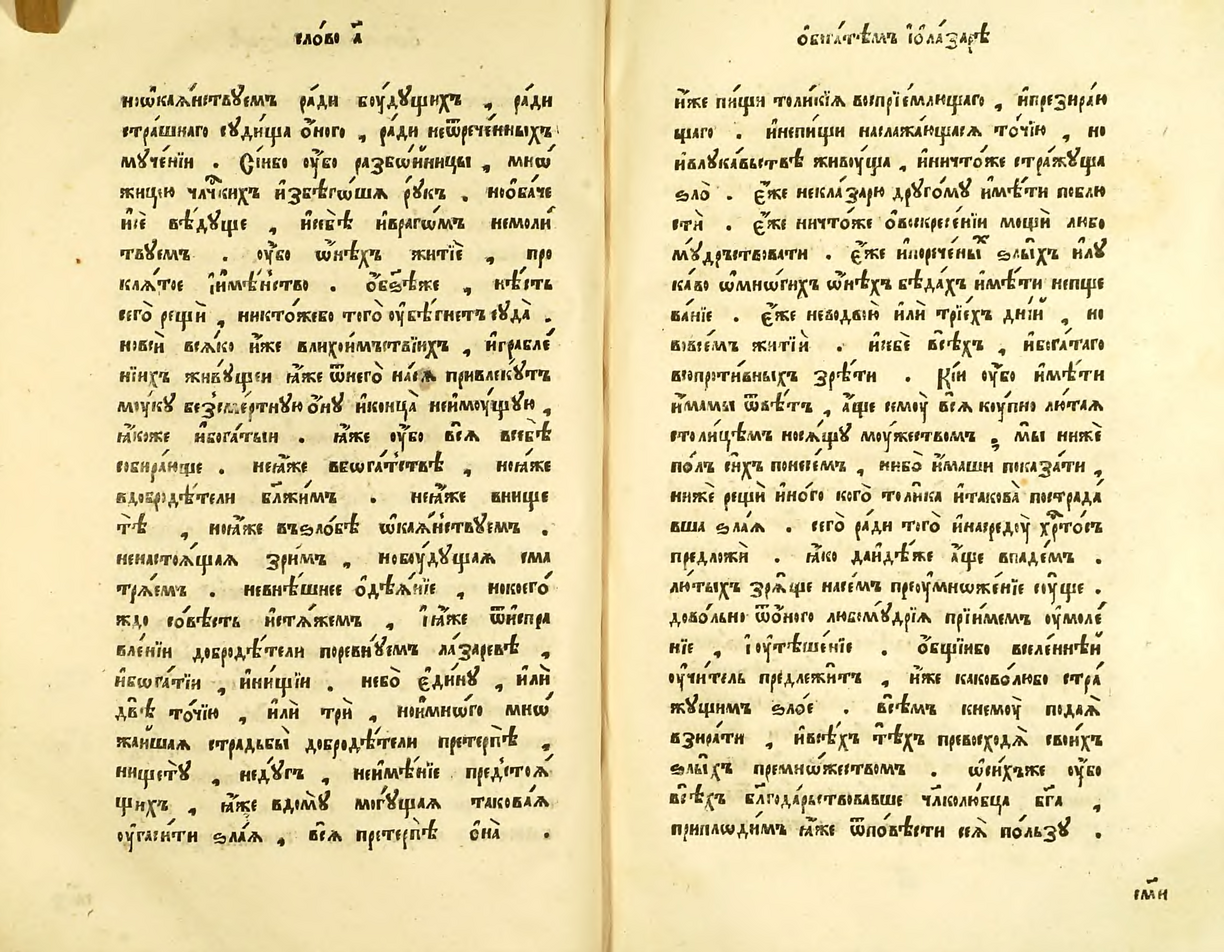 сло́во а҃
ноѡ҆кая́нствꙋемъ ра́ди боу́дꙋщихъ , ра́ди
стра́шнаго сꙋди́ща о҆́ного , ра́ди неѿрече́нныхъ
мꙋче́нїи . Сі́ибо оу҆́бо разбѡ́йницы , мнѡ
жи́цїю чл҃чкихъ и҆збѣго́шѧ рꙋ́к . нооба́че
и҆сѐ вѣ́дꙋще , и҆себѣ̀ и҆враго́мъ немоли́
твꙋемъ . оу҆́бо ѡ҆нѣ́хъ житїѐ , про
клѧ́тое і҆имѣ́нство . о҆бѣ́же , нѣ́сть
сего̀ рещѝ , никто́жебо того̀ оу҆бѣ́гнетъ сꙋда̀ .
новсѝ всѧ́ко и҆́же влихои́мъствїихъ , и҆грабле́
нїихъ живꙋ́щеи ꙗ҆́же ѿнего̀ на́сѧ привлекꙋ́тъ
моукꙋ безсме́ртнꙋю о҆́нꙋ и҆конца̀ неи́моущꙋю ,
ꙗ҆́коже и҆бога́тыи . ꙗ҆́же оу҆́бо всѧ̀ всебѣ̀
собира́юще . неꙗ҆́же вбѡга́тствѣ , ноꙗ҆́же
вдобродѣ́тели бл҃жи́мъ . неꙗ҆́же внище
тѣ̀ , ноꙗ҆́же въѕло́бѣ ѡ҆кая́нствꙋемъ .
ненастоѧ́щаѧ зри́мъ , нобоу́дꙋщаѧ сма
трѧ́емъ . невнѣ́шнее о҆дѣѧ́нїе , нокоего́
ждо со́вѣсть и҆стѧ́жемъ , і҆ꙗ҆́же ѿи҆спра
вле́нїи добродѣ́тели поревнꙋ́емъ ла́заревѣ ,
и҆бѡга́тїи , и҆ни́щїи . небо̀ є҆ди́нꙋ , и҆лѝ
двѣ̀ то́чїю , и҆лѝ трѝ , нои҆мно́го мнѡ
жа́йшаѧ страдьбы̀ добродѣ́тели претерпѣ̀ ,
нищетꙋ̀ , недꙋ́гъ , неимѣ́нїе предстоѧ́
щихъ , ꙗ҆́же вдомꙋ̀ могꙋ́щаѧ такова́ѧ
оу҆гаси́ти ѕла́ѧ , всѧ̀ претерпѣ̀ о҆на̀ .
о҆бога́тѣмъ і҆ола́зарѣ
и҆́же пи́щи толи́кїѧ воспрїе́млющаго , и҆презира́ю
щаго . и҆непи́щи наслажа́ющасѧ то́чїю , но
и҆влꙋка́вьствѣ живоу́ща , и҆ничто́же стра́жꙋща
ѕло̀ . є҆́же некла́зарю дрꙋго́мꙋ и҆мѣ́ти поблю
стѝ . є҆́же ничто́же о҆воскресе́нїи мощѝ либо
мꙋ́дрьствовати . є҆́же и҆порече́ныⷯ ѕлы́хъ и҆лꙋ
ка́во ѡ҆мно́гихъ ѡ҆нѣ́хъ бѣда́хъ и҆мѣ́ти непще
ва́нїе . є҆́же неводвою̀ и҆лѝ трїе́хъ днїи̑ , но
вовсе́мъ житїѝ . и҆себѐ всѣ́хъ , и҆бога́таго
вᲂпроти́вныхъ зрѣ́ти . Кі́и оу҆́бо и҆мѣ́ти
и҆́мамы ѿвѣ́тъ , а҆́ще семоу̀ всѧ̀ коу́пно лю́таѧ
столи́цѣмъ носѧ́щꙋ моу́жествомъ ; мы̀ нижѐ
по́лъ си́хъ понесе́мъ , нибо̀ и҆́маши показа́ти ,
нижѐ рещѝ и҆но́го кого̀ толи́ка и҆такова̀ пострада́
вша ѕла́ѧ . сего̀ ра́ди того̀ и҆насредоу̀ хр҃то́съ
предложѝ . ꙗ҆́ко дайдѣ́же а҆́ще впаде́мъ .
лю́тыхъ зрѧ́ще насе́мъ преоу҆множе́нїе соу́ще .
дово́льно ѿо҆́ного любомꙋ́дрїѧ прїи́мемъ оу҆моле́
нїе , і҆оу҆тѣше́нїе . о҆́бщїибо вселе́ннѣй
оу҆чи́тель предлежи́тъ , и҆́же каковолю́бо стра́
жꙋщимъ ѕло́е . всѣ́мъ кнемоу̀ пода́ѧ
взира́ти , и҆всѣ́хъ тѣ́хъ превосходѧ̀ свои́хъ
ѕлы́хъ премно́жествомъ . ѡ҆си́хъже оу҆́бо
всѣ́хъ бл҃года́рьствовавше чл҃колю́бца бг҃а ,
приплоди́мъ ꙗ҆́же ѿпо́вѣсти сеѧ̀ по́льзꙋ .